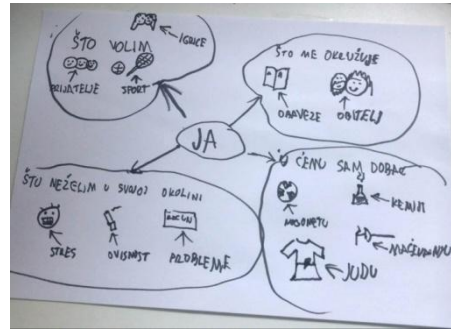 ŠTO VOLIM
IGRICE
PRIJATELJE
SPORT
ŠTO ME OKRUŽUJE
OBAVEZE
OBITELJ
JA
ŠTO NEŽELIM U SVOJOJ OKOLINI
STRES
OVISNOST
RAČUN
PROBLEME
U ČEMU SAM DOBAR
NOGOMETU
KEMIJI
MAČEVANJU
JUDU